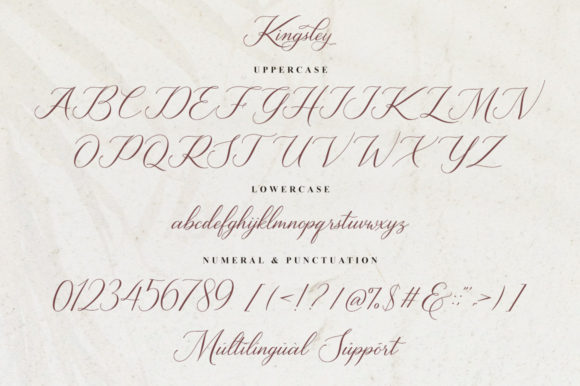 Kingsley
UPPERCASE
ABCDEFGHIJKLMN
OPQRSTUVWXYZ
LOWERCASE
abcdefghijklmnopqrstuvwxyz
NUMERAL & PUNCTUATION
0123456789 [(<!?/|@%$#&:;"',>)]
Multilingual Support